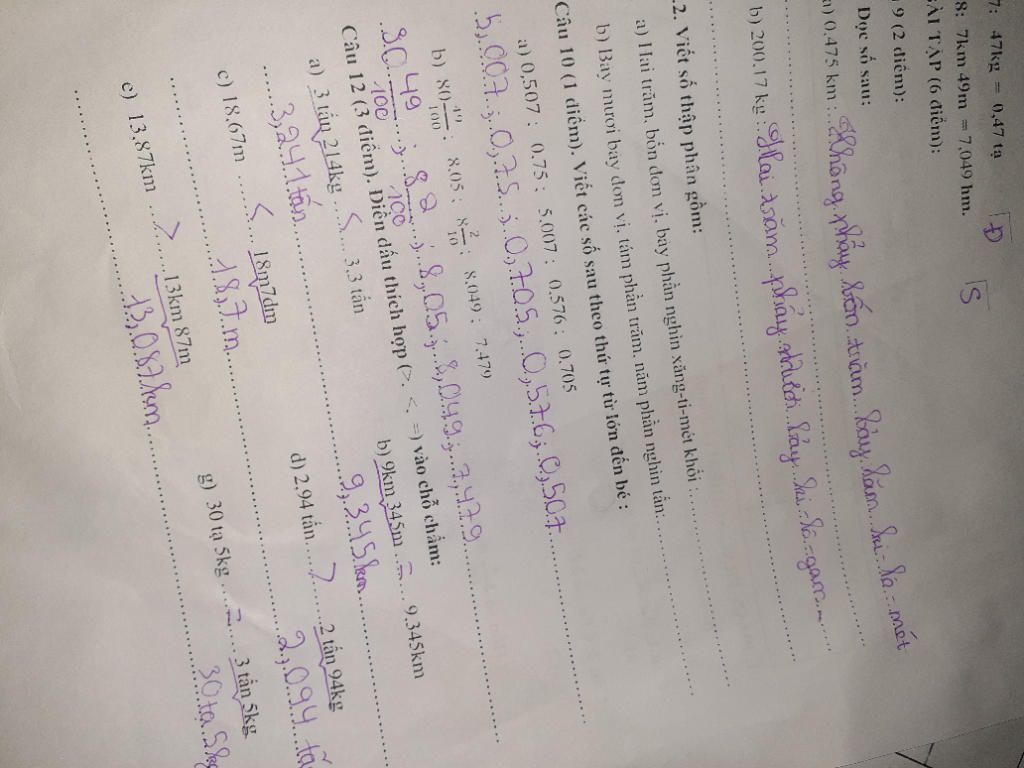 7: 47kg = 0,47 tạ Đ
8: 7km 49m = 7,049 hm. S
BÀI TẬP (6 điểm):
9 (2 điểm):
Đọc số sau:
a) 0,475 km : Không phẩy bốn trăm bảy lăm ki-lô-mét
b) 200,17 kg : Hai trăm phẩy mười bảy ki-lô-gam
.2. Viết số thập phân gồm:
a) Hai trăm, bốn đơn vị, bảy phần nghìn xăng-ti-mét khối :
b) Bảy mươi bảy đơn vị, tám phần trăm, năm phần nghìn tấn:
Câu 10 (1 điểm). Viết các số sau theo thứ tự từ lớn đến bé :
a) 0,507 ; 0,75 ; 5,007 ; 0,576 ; 0,705
5,007 ; 0,75 ; 0,705 ; 0,576 ; 0,507
b) 80 49/100 ; 8,05 ; 8 2/10 ; 8,049 ; 7,479
80 49/100 ; 8,05 ; 8,049 ; 7,479
Câu 12 (3 điểm). Điền dấu thích hợp (>, <, =) vào chỗ chấm:
a) 3 tấn 214kg < 3,3 tấn b) 9km 345m = 9,345km
3,241 tấn 9,345km
c) 18,67m < 18m7dm d) 2,94 tấn > 2 tấn 94kg
18,7m 2,094 tấ
e) 13,87km > 13km 87m g) 30 tạ 5kg = 3 tấn 5kg
13,087km 30 tạ 5kg